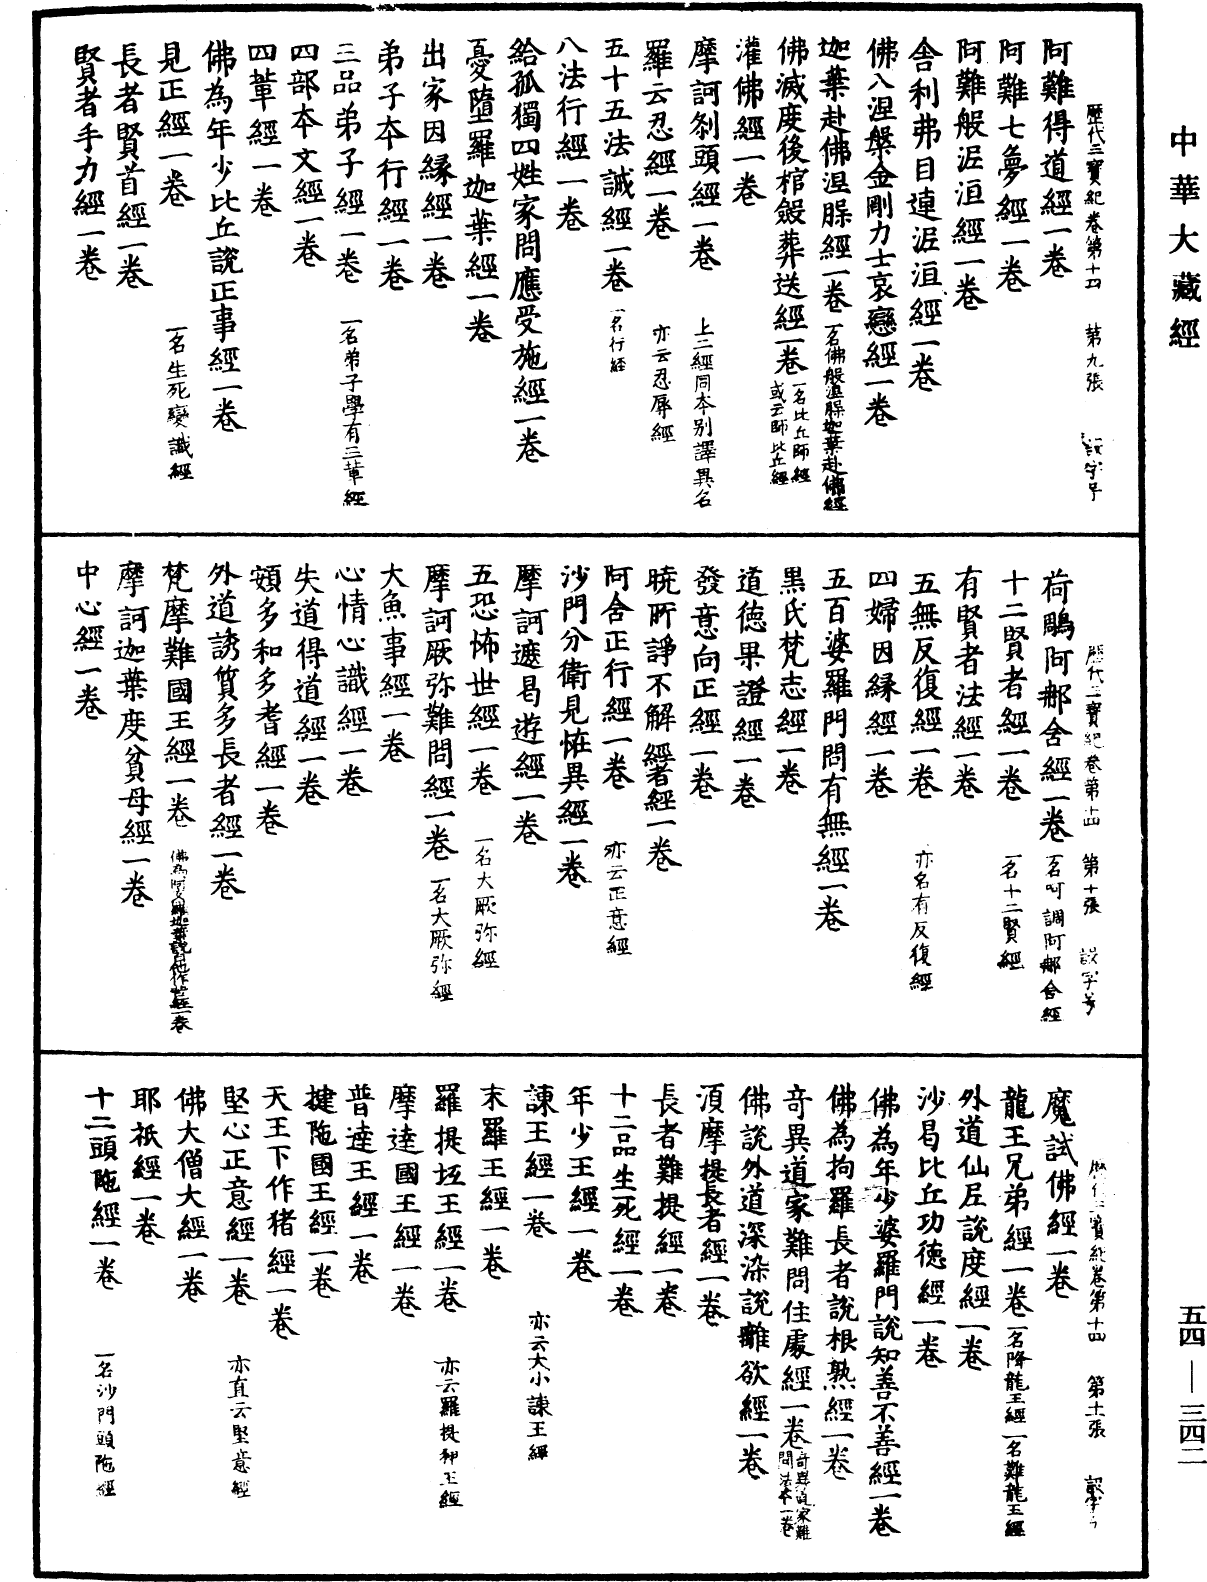 中華大藏經
五四—三四二
歷代三寶紀卷第十四 第九張 設字号
阿難得道經一卷
阿難七夢經一卷
阿難般泥洹經一卷
舍利弗目連泥洹經一卷
佛八涅槃金剛力士哀戀經一卷
迦葉赴佛涅槃經一卷 一名佛般涅槃迦葉赴佛經
佛滅度後棺斂葬送經一卷 一名比丘師經 或云師比丘經
灌佛經一卷
摩訶剎頭經一卷 上二經同本別譯異名
羅云忍經一卷 亦云忍辱經
五十五法誡經一卷 一名行經
八法行經一卷
給孤獨四姓家問應受施經一卷
憂墮羅迦葉經一卷
出家因緣經一卷
弟子本行經一卷
三品弟子經一卷 一名弟子學有三輩經
四部本文經一卷
四輩經一卷
佛為年少比丘說正事經一卷
見正經一卷 一名生死變識經
長者賢首經一卷
賢者手力經一卷
歷代三寶紀卷第十四 第十張 設字号
荷鵰阿那含經一卷 一名呵調阿那含經
十二賢者經一卷 一名十二賢經
有賢者法經一卷
五無反復經一卷 亦名有反復經
四婦因緣經一卷
五百婆羅門問有無經一卷
黑氏梵志經一卷
道德果證經一卷
發意向正經一卷
曉所諍不解經者經一卷
阿含正行經一卷 亦云正意經
沙門分衛見恠異經一卷
摩訶遮曷遊經一卷
五恐怖世經一卷 一名大厥弥經
摩訶厥弥難問經一卷 一名大厥弥經
大魚事經一卷
心情心識經一卷
失道得道經一卷
頞多和多耆經一卷
外道誘質多長者經一卷
梵摩難國王經一卷
摩訶迦葉度貧母經一卷
中心經一卷
歷代三寶紀卷第十四 第十一張 設字号
魔試佛經一卷
龍王兄弟經一卷 一名降龍王經 一名難龍王經
外道仙尼說度經一卷
沙曷比丘功德經一卷
佛為年少婆羅門說知善不善經一卷
佛為拘羅長者說根熟經一卷
奇異道家難問住處經一卷 奇異道家難問法本一卷
佛說外道深染說離欲經一卷
湏摩提長者經一卷
長者難提經一卷
十二品生死經一卷
年少王經一卷
諫王經一卷 亦云大小諫王經
末羅王經一卷
羅提坻王經一卷 亦云羅提押王經
摩達國王經一卷
普達王經一卷
揵陁國王經一卷
天王下作猪經一卷
堅心正意經一卷 亦直云堅意經
佛大僧大經一卷
耶祇經一卷
十二頭陁經一卷 一名沙門頭陁經